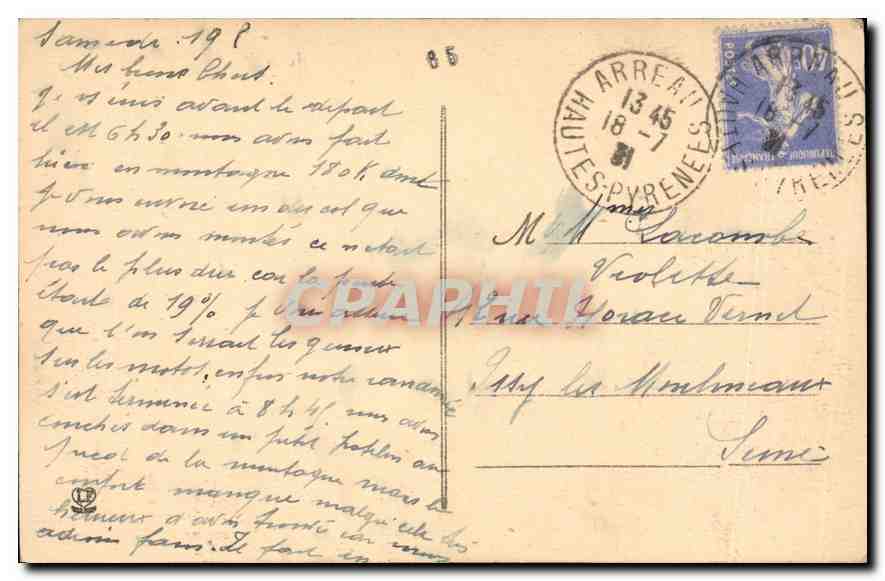 Samedi 198
85
Mes biens Chers
avant le départ
il est 6h30 nous avons fait
hier en montagne 180 K dont
je vous envoie un des col que
nous avons montés ce n'etait
pas le plus dur car la pente
était de 19%
que l'on serrait les genoux
sur les motos, enfin notre randonnée
s'est terminée à 8h45 nous avons
couchés dans un petit patelin au
pied de la montagne mais le
confort manque malgré cela très
heureux d'avoir trouvé car nous
avions faim. Il fait
LF
ARREAU
13 45
18 - 7
31
HAUTES-PYRENEES
POSTES
40
REPUBLIQUE FRANÇAISE
ARREAU
13 45
18 - 7
HAUTES-PYRENEES
M & Mmes Lacombe
Violette
Rue Horace Vernet
Issy les Moulineaux
Seine
CPAPHIL